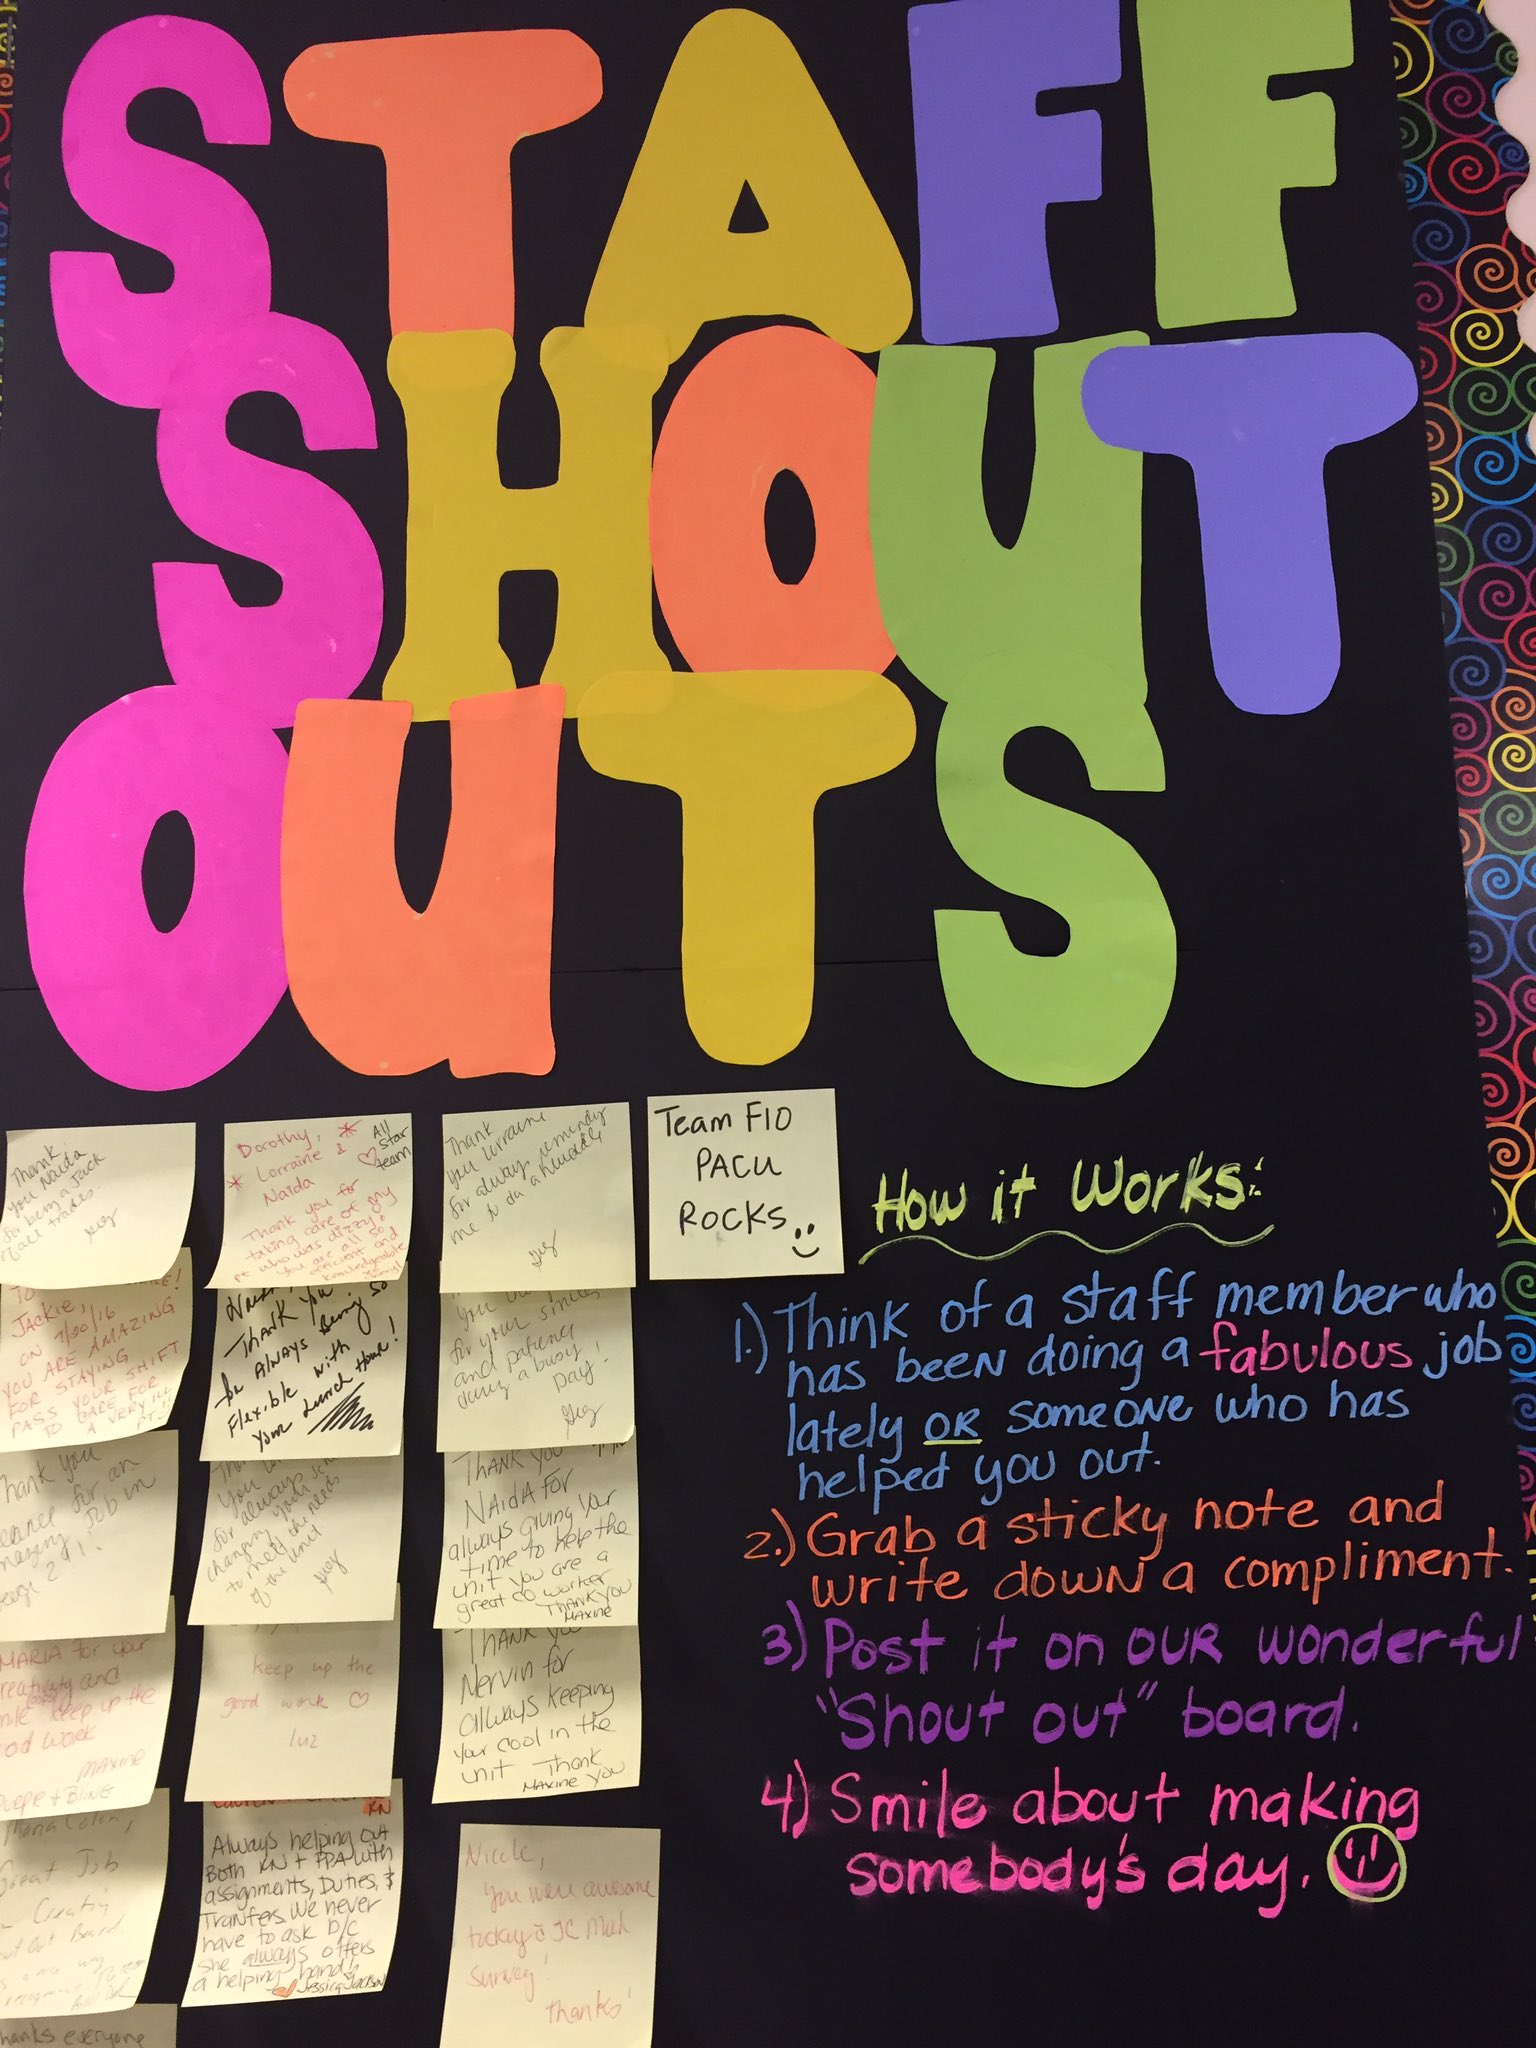 STAFF
SHOUT
OUTS
Thank
you Naida
for being a Jack
of all trades.
Dorothy,
Lorraine &
Naida
All
Star
team
Thank you for
taking care of my
pt who was dizzy
you are all so
efficient and
knowledgeable
Thank
you Lorraine
for always reminding
me to do a huddle
Team F10
PACU
ROCKS
How it Works:
1.) Think of a staff member who
has been doing a fabulous job
lately OR someone who has
helped you out.
2.) Grab a sticky note and
write down a compliment.
3) Post it on our wonderful
"Shout out" board.
4) Smile about making
somebody's day.
JACKIE,
ON 7/20/16
YOU ARE AMAZING
FOR STAYING
PASS YOUR SHIFT
TO CARE FOR
A VERY ILL
PT!!
Thank you
for always being so
flexible with
your lunch hour!
for your smile
and patience
during a busy
Day!
Thank you
for an
Job in
for always
changing your
to meet the needs
of the unit
THANK YOU
NAIDA FOR
always giving your
time to help the
unit you are a
great co worker
THANK YOU
MAXINE
MARIA for your
and
keep up the
work
MAXINE
keep up the
good work
luz
THANK YOU
Nervin for
always keeping
your cool in the
unit Thank
MAXINE you
Great Job
RN
Always helping out
Both RN + PPA with
assignments, Duties, &
Tranfers. We never
have to ask b/c
she always offers
a helping hand!!
Jessica Jackson
Nicole,
You were awesome
today c JC Mock
Survey!
Thanks!
thanks everyone